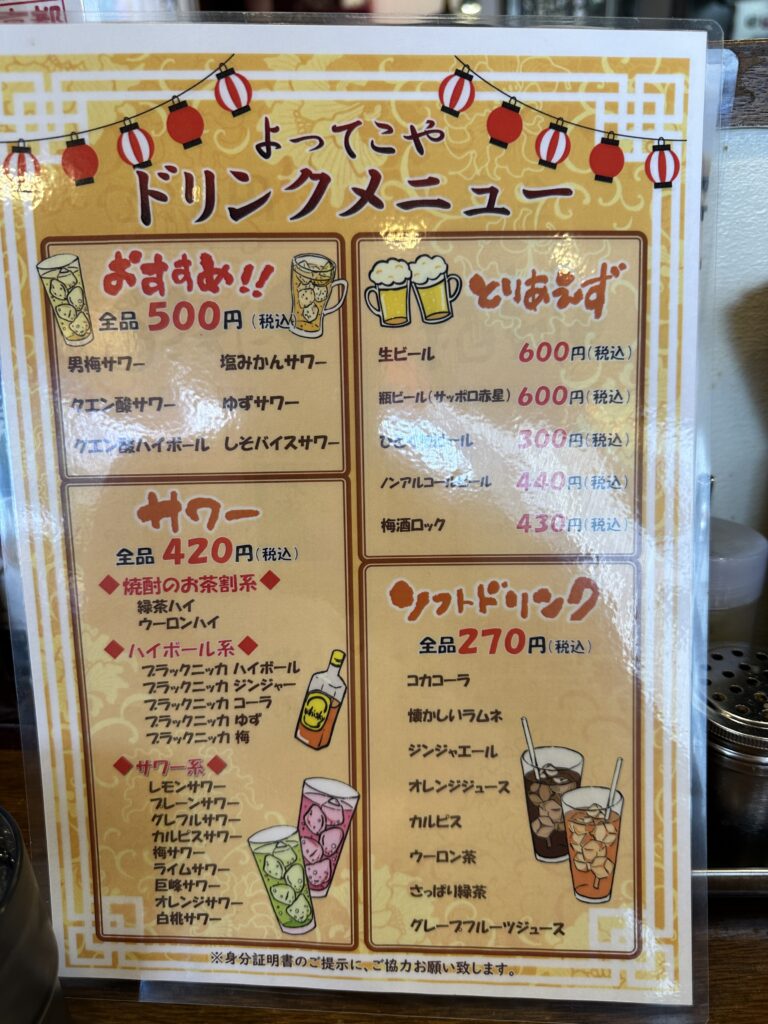 京都
よってこや
ドリンクメニュー
おすすめ!!
全品 500円(税込)
男梅サワー 塩みかんサワー
クエン酸サワー ゆずサワー
クエン酸ハイボール しそバイスサワー
とりあえず
生ビール 600円(税込)
瓶ビール(サッポロ赤星) 600円(税込)
ビール 300円(税込)
ノンアルコールビール 440円(税込)
梅酒ロック 430円(税込)
サワー
全品 420円(税込)
◆焼酎のお茶割系◆
緑茶ハイ
ウーロンハイ
◆ハイボール系◆
ブラックニッカ ハイボール
ブラックニッカ ジンジャー
ブラックニッカ コーラ
ブラックニッカ ゆず
ブラックニッカ 梅
◆サワー系◆
レモンサワー
プレーンサワー
グレフルサワー
カルピスサワー
梅サワー
ライムサワー
巨峰サワー
オレンジサワー
白桃サワー
whisky
ソフトドリンク
全品270円(税込)
コカコーラ
懐かしいラムネ
ジンジャエール
オレンジジュース
カルピス
ウーロン茶
さっぱり緑茶
グレープフルーツジュース
※身分証明書のご提示に、ご協力お願い致します。